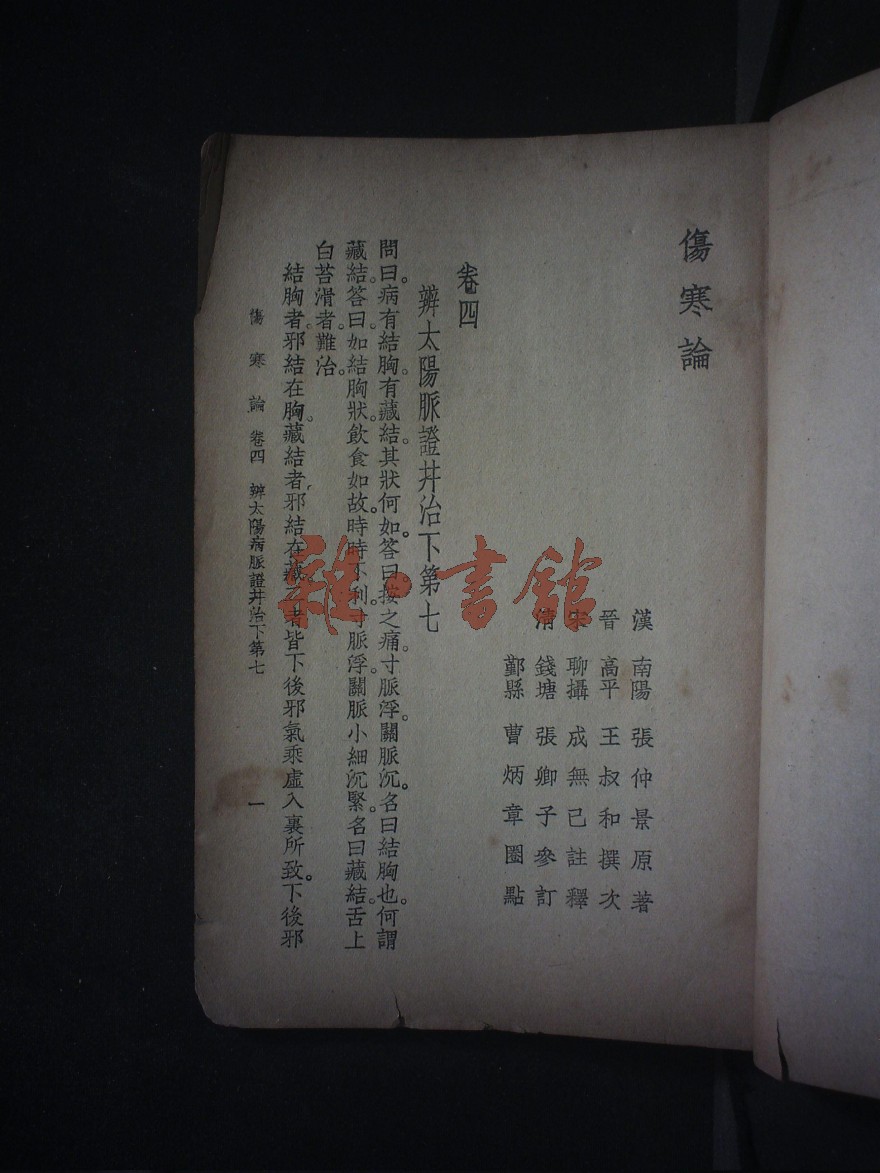 傷寒論
漢 南陽 張仲景原著
晉 高平 王叔和撰次
宋 聊攝 成無已註釋
清 錢塘 張卿子參訂
鄞縣 曹炳章圈點
卷四
辨太陽脈證并治下第七
問曰。病有結胸。有藏結。其狀何如。答曰。按之痛。寸脈浮。關脈沉。名曰結胸也。何謂
藏結。答曰。如結胸狀。飲食如故。時時下利。寸脈浮。關脈小細沉緊。名曰藏結。舌上
白苔滑者。難治。
結胸者。邪結在胸。藏結者。邪結在藏。二者皆下後邪氣乘虛入裏所致。下後邪
傷寒論 卷四 辨太陽病脈證并治下第七 一
雜·書館